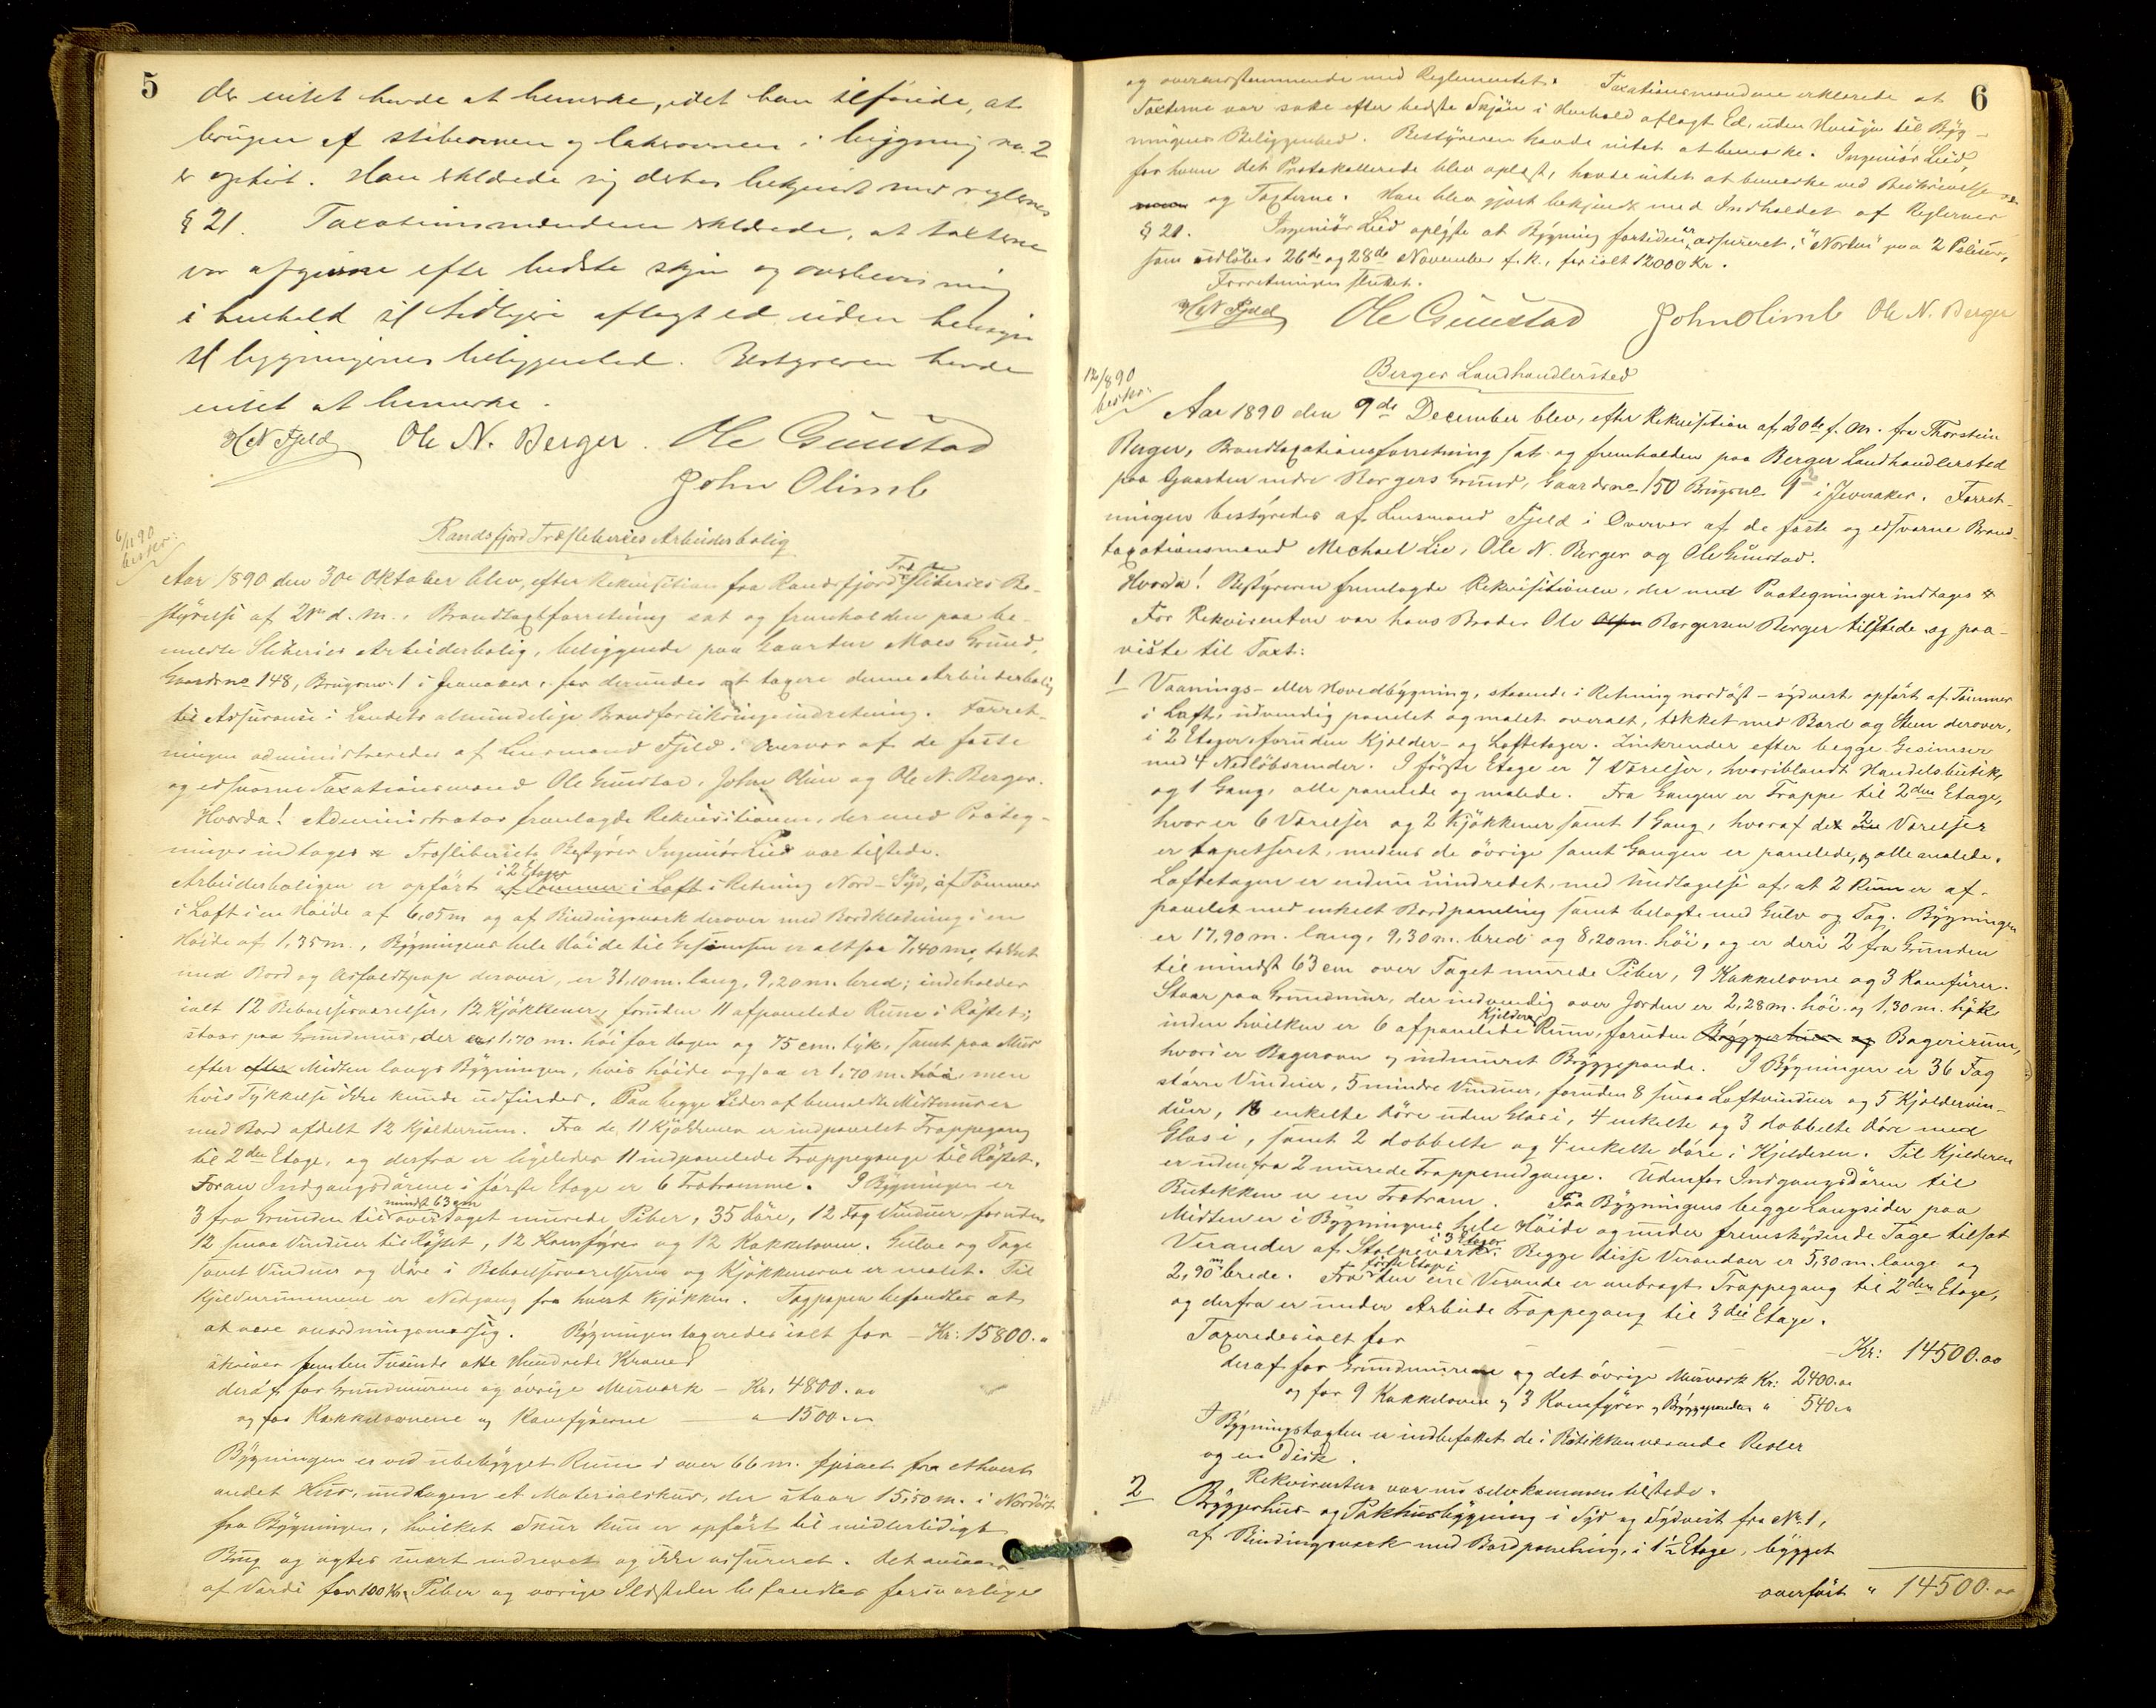 5
der intet havde at bemerke, idet han tilføiede, at
brugen af stibeovnen og lakeovnen i bygning no. 2
er ophørt. Han erklærede sig derhos bekjendt med reglernes
§ 21. Taxationsmændene erklærede, at taxterne
var afgivne efter bedste skjøn og overbevisning
i henhold til tidligere aflagt ed uden hensyn
til bygningernes beliggenhed. Bestyreren havde
intet at bemerke.
HN Fjeld Ole N. Berger. Ole Guustad
John Olimb
6/11 90
beskr:
Randsfjord Træsliberies Arbeiderbolig
Aar 1890 den 30te Oktober blev, efter Rekvisition fra Randsfjord Træ-Sliberies Be-
styrelse af 21de d. M., Brandtaxtforretning sat og fremholden paa be-
meldte Sliberies Arbeiderbolig, beliggende paa Gaarden Moes Grund,
Gaardsno 148, Brugsno: 1 i Jevnaker, for derunder at taxere denne Arbeiderbolig
til Assurance i Landets almindelige Brandforsikringsindretning. Forret-
ningen administreredes af Lensmand Fjeld i Overvær af de faste
og edsvorne Taxationsmænd Ole Guustad, John Olim og Ole N. Berger.
Hvorda! Administrator fremlagde Rekvisitionen, der med Paateg-
ninger indtages # Træsliberiets Bestyrer Ingeniør Lied var tilstede.
i 2 Etager
Arbeiderboligen er opført af Tømmer i Laft i Retning Nord-Syd, af Tømmer
i Laft i en Høide af 6,05 m og af Bindingsverk derover med Bordklædning i en
Høide af 1,35 m., Bygningens hele Høide til Gesimsen er altsaa 7,40 m, tækket
med Bord og Asfaldtpap derover, er 31,10 m. lang, 9,20 m. bred; indeholder
ialt 12 Beboelsesværelser, 12 Kjøkkener, foruden 11 afpanelede Rum i Røstet;
staar paa Grundmur, der er 1,70 m. høi for Dagen og 75 cm. tyk, samt paa Mur
efter efter Midten langs Bygningen, hvis høide ogsaa er 1,70 m. høi, men
hvis Tykkelse ikke kunde udfindes. Paa begge Sider af bemeldte Midtmur er
med Bord afdelt 12 Kjælderrum. Fra de 11 Kjøkkener er indpanelet Trappegang
til 2den Etage, og derfra er ligeledes 11 indpanelede Trappegange til Røstet.
Foran Indgangsdørene i første Etage er 6 Trætramme. I Bygningen er
mindst 63 cm
3 fra Grunden til over Taget murede Piber, 35 Døre, 12 Fag Vinduer foruden
12 smaa Vinduer til Røstet, 12 Komfyrer og 12 Kakkelovne. Gulve og Tage
samt Vinduer og Døre i Beboelsesværelserne og Kjøkkenerne er malet. Til
Kjelderrummene er Nedgang fra hvert Kjøkken. Tagpapen befandtes at
at være anordningsmæssig. Bygningen taxeredes ialt for — Kr: 15800. "
skriver femten Tusinde otte Hundrede Kroner
deraf for Grundmurene og øvrige Murværk — Kr. 4800. oo
og for Kakkelovnene og Komfyrerne — " 1500. oo
Bygningen er ved ubebygget Rum i over 66 m. fjernet fra ethvert
andet Hus, undtagen et Materialskur, der staar 15,50 m. i Nordøst
fra Bygningen, hvilket Skur kun er opført til midlertidigt
Brug og agtes snart nedrevet og ikke assureret. Det ansaaes
af Værdi for 100 Kr. Piber og øvrige Ildsteder befandtes forsvarlige
6
og overensstemmende med Reglementet. Taxationsmændene erklærede at
Taxterne var satte efter bedste Skjøn i Henhold aflagt Ed, uden Hensyn til Byg-
ningens Beliggenhed. Bestyreren havde intet at bemerke. Ingeniør Lied,
for hvem det Protokollerede blev oplæst, havde intet at bemerke ved Beskrivelsen
og Taxterne. Han blev gjort bekjendt med Indholdet af Reglernes
§ 21. Ingeniør Lied oplyste at Bygning fortiden er assureret i "Norden" paa 2 Policer,
som udløber 26de og 28de November f. k., for ialt 12000 Kr.
Forretningen sluttet.
HN Fjeld Ole Guustad John Olimb Ole N. Berger
12/12 90
beskr:
Berger Landhandlersted
Aar 1890 den 9de December blev, efter Rekvisition af 20de f. M. fra Thorstein
Berger, Brandtaxationsforretning sat og fremholden paa Berger Landhandlersted
paa Gaarden nedre Bergers Grund, Gaardsno 150 Brugsno 9 i Jevnaker. Forret-
ningen bestyredes af Lensmand Fjeld i Overvær af de faste og edsvorne Brand-
taxationsmænd Michael Lie, Ole N. Berger og Ole Guustad.
Hvorda! Bestyreren fremlagde Rekvisitionen, der med Paategninger indtages #
For Rekvirenten var hans Broder Ole Borgersen Berger tilstede og paa-
viste til Taxt:
1 Vaanings- eller Hovedbygning, staaende i Retning nordøst-sydvest, opført af Tømmer
i Laft, udvendig panelet og malet overalt, tækket med Bord og Sten derover,
i 2 Etager, foruden Kjælder- og Loftetager. Zinkrender efter begge Gesimser
med 4 Nedløbsrender. I første Etage er 7 Værelser, hvoriblandt Handelsbutik,
og 1 Gang, alle panelede og malede. Fra Gangen er Trappe til 2den Etage,
hvor er 6 Værelser og 2 Kjøkkener samt 1 Gang, hvoraf det 2 Værelser
er tapetseret, medens de øvrige samt Gangen er panelede, og alle malede.
Loftetagen er endnu uindredet, med Undtagelse af, at 2 Rum er af-
panelet med enkelt Bordpaneling samt belagte med Gulv og Tag. Bygningen
er 17,90 m. lang, 9,30 m. bred og 8,20 m. høi, og er deri 2 fra Grunden
til mindst 63 cm over Taget murede Piber, 9 Kakkelovne og 3 Komfyrer.
Staar paa Grundmur, der indvendig over Jorden er 2,28 m. høi og 1,30 m. tyk
Kjelder
inden hvilken er 6 afpanelede Rum, foruden Bryggerhus og Bagerirum,
hvori er Bagerovn og indmuret Bryggepande. I Bygningen er 36 Fag
større Vinduer, 5 mindre Vinduer, foruden 8 smaa Loftvinduer og 5 Kjældervin-
duer, 18 enkelte Døre uden Glas i, 4 enkelte og 3 dobbelte Døre med
Glas i, samt 2 dobbelte og 4 enkelte døre i Kjelderen. Til Kjelderen
er udenfra 2 murede Trappenedgange. Udenfor Indgangsdøren til
Butikken er en Trætram. Paa Bygningens begge Langsider paa
Midten er i Bygningens hele Høide og under fremskydende Tage tilsat
i 3 Etager
Verander af Stolpeværk. Begge disse Verandaer er 5,30 m. lange og
første Etage i
2,90 m brede. Fra den ene Verande er anbragt Trappegang til 2den Etage,
og derfra er under Arbeide Trappegang til 3die Etage.
Taxeredes ialt for — Kr: 14500. oo
deraf for Grundmurene og det øvrige Murværk Kr: 2400. oo
og for 9 Kakkelovne og 3 Komfyrer og Bryggepanden " 540. "
I Bygningstaxten er indbefattet de i Butikken værende Reoler
og en Disk.
Rekvirenten var nu selv kommen tilstede.
2 Bryggerhus- og Pakhusbygning i Syd og Sydvest fra No 1,
af Bindingsværk med Bordpaneling, i 1½ Etage, bygget
overført " 14500. oo